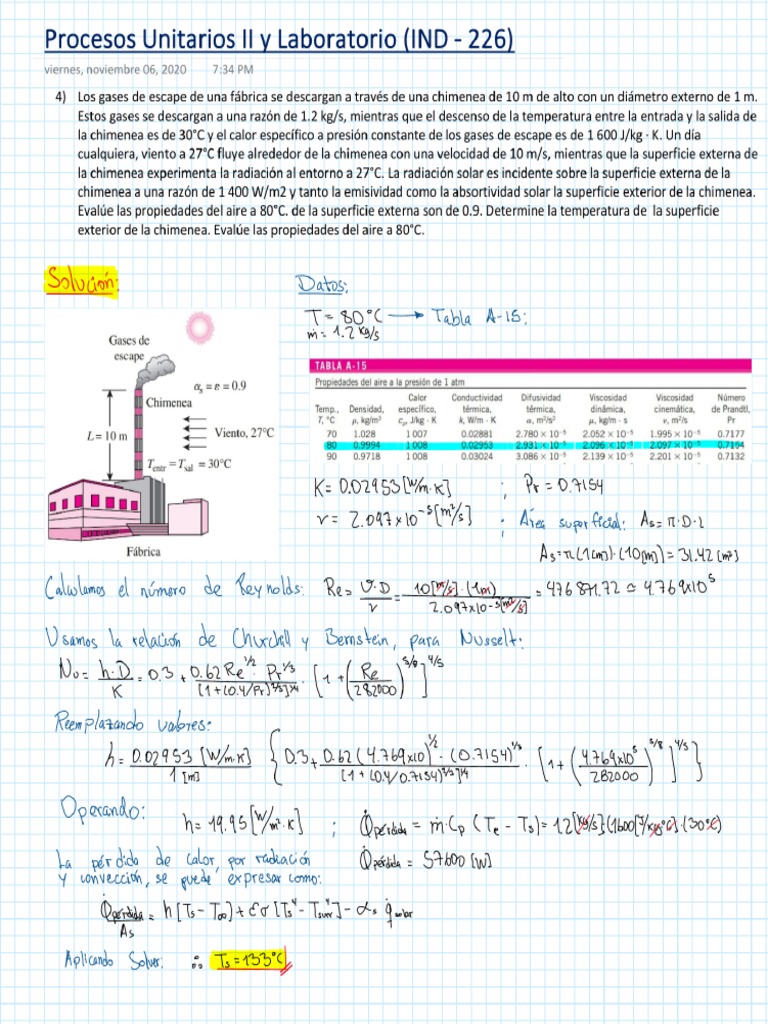 Procesos Unitarios II y Laboratorio (IND - 226)
viernes, noviembre 06, 2020 7:34 PM
4) Los gases de escape de una fábrica se descargan a través de una chimenea de 10 m de alto con un diámetro externo de 1 m.
Estos gases se descargan a una razón de 1.2 kg/s, mientras que el descenso de la temperatura entre la entrada y la salida de
la chimenea es de 30°C y el calor específico a presión constante de los gases de escape es de 1 600 J/kg · K. Un día
cualquiera, viento a 27°C fluye alrededor de la chimenea con una velocidad de 10 m/s, mientras que la superficie externa de
la chimenea experimenta la radiación al entorno a 27°C. La radiación solar es incidente sobre la superficie externa de la
chimenea a una razón de 1 400 W/m2 y tanto la emisividad como la absortividad solar la superficie exterior de la chimenea.
Evalúe las propiedades del aire a 80°C. de la superficie externa son de 0.9. Determine la temperatura de la superficie
exterior de la chimenea. Evalúe las propiedades del aire a 80°C.
Solución:
Datos:
T = 80°C → Tabla A-15:
ṁ = 1.2 kg/s
Gases de
escape
αs = ε = 0.9
Chimenea
L = 10 m
Viento, 27°C
Tentr – Tsal = 30°C
Fábrica
TABLA A-15
Propiedades del aire a la presión de 1 atm
Calor Conductividad Difusividad Viscosidad Viscosidad Número
Temp., Densidad, específico, térmica, térmica, dinámica, cinemática, de Prandtl,
T, °C ρ, kg/m³ cp, J/kg · K k, W/m · K α, m²/s² μ, kg/m · s ν, m²/s Pr
70 1.028 1 007 0.02881 2.780 × 10⁻⁵ 2.052 × 10⁻⁵ 1.995 × 10⁻⁵ 0.7177
80 0.9994 1 008 0.02953 2.931 × 10⁻⁵ 2.096 × 10⁻⁵ 2.097 × 10⁻⁵ 0.7154
90 0.9718 1 008 0.03024 3.086 × 10⁻⁵ 2.139 × 10⁻⁵ 2.201 × 10⁻⁵ 0.7132
K = 0.02953 [W/m·K] ; Pr = 0.7154
ν = 2.097×10⁻⁵ [m²/s] ; Área superficial: As = π·D·L
As = π(1[m])·(10[m]) = 31.42 [m²]
Calculamos el número de Reynolds: Re = ϑ·D/ν = 10[m/s]·(1m)/2.097×10⁻⁵[m²/s] = 476 871.72 ≃ 4.769×10⁵
Usamos la relación de Churchill y Bernstein, para Nusselt:
Nu = h·D/K = 0.3 + 0.62 Re^1/2 · Pr^1/3/[1+(0.4/Pr)^2/3]^1/4 · [1 + (Re/282000)^5/8]^4/5
Reemplazando valores:
h = 0.02953 [W/m·K]/1 [m] {0.3 + 0.62 (4.769×10⁵)^1/2 · (0.7154)^1/3/[1+(0.4/0.7154)^2/3]^1/4 · [1 + (4.769×10⁵/282000)^5/8]^4/5}
Operando:
h = 19.95 [W/m²·K] ; Q̇pérdida = ṁ·Cp (Te – Ts) = 1.2 [kg/s] (1600 [J/kg°C]·(30°C)
La pérdida de calor, por radiación Q̇pérdida = 57600 [W]
y convección, se puede expresar como:
Q̇pérdida/As = h [Ts – T∞] + εσ [Ts⁴ – Tsurr⁴] – αs q̇solar
Aplicando Solver: ∴ Ts = 133°C